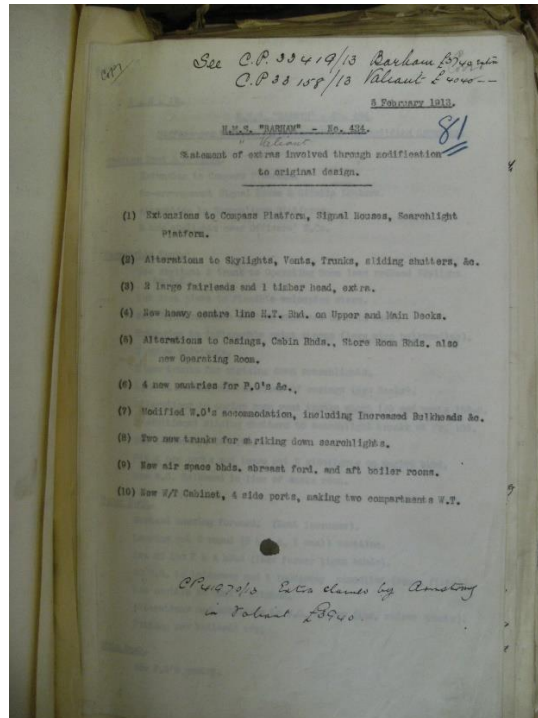 Copy
See C.P. 33419/13 Barham £3749
C.P 33158/13 Valiant £4040 - -
6 February 1913.
H.M.S. "BARHAM" - No. 424.
" Valiant
81
Statement of extras involved through modification
to original design.
(1) Extensions to Compass Platform, Signal Houses, Searchlight
Platform.
(2) Alterations to Skylights, Vents, Trunks, sliding shutters, &c.
(3) 2 large fairleads and 1 timber head, extra.
(4) New heavy centre line M.T. Bhd. on Upper and Main Decks.
(5) Alterations to Casings, Cabin Bhds., Store Room Bhds. also
new Operating Room.
(6) 4 new pantries for P.O's &c.,
(7) Modified W.O's accommodation, including Increased Bulkheads &c.
(8) Two new trunks for striking down searchlights.
(9) New air space bhds. abreast ford. and aft boiler rooms.
(10) New W/T Cabinet, 4 side ports, making two compartments W.T.
CP41970/13 Extra claims by Armstrong
in Valiant £3940